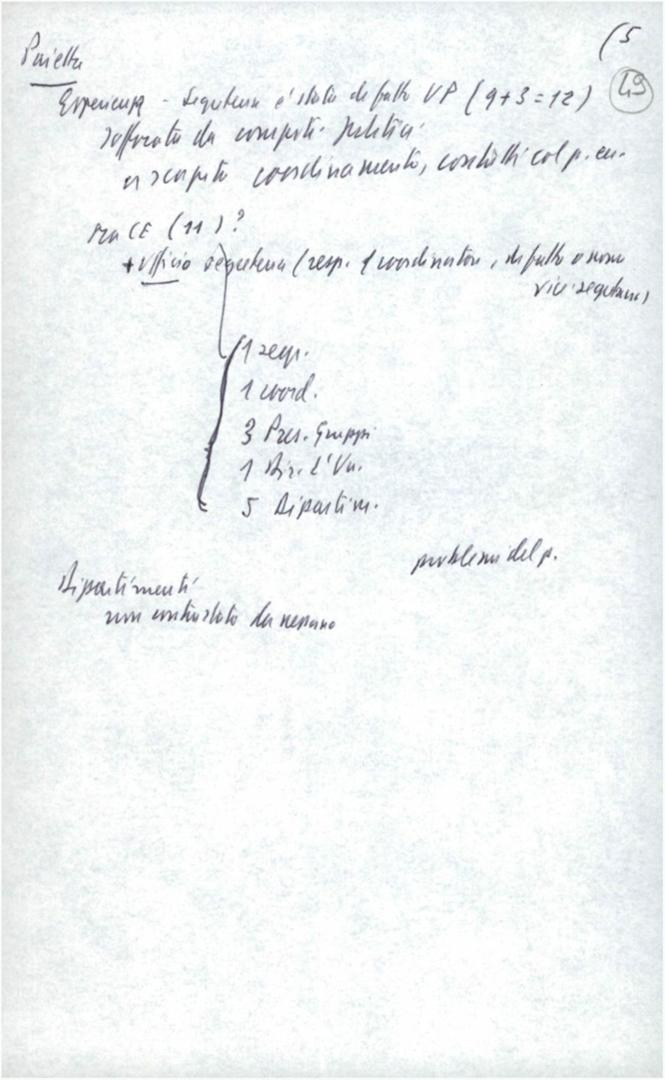 (5
49
Pajetta
Esperienza - Segreteria è stata di fatto UP (9+3=12)
soffocata da compiti politici
coordinamento, conflitti col p. en.
ma CE (11)?
+ Ufficio segreteria (resp. 1 coordinatore, di fatto o nom
vice segretario)
1 segr.
1 coord.
3 Pres. Gruppi
1 Dir. l'Un.
5 Dipartim.
problemi del p.
Dipartimenti
non contrastato da nessuno